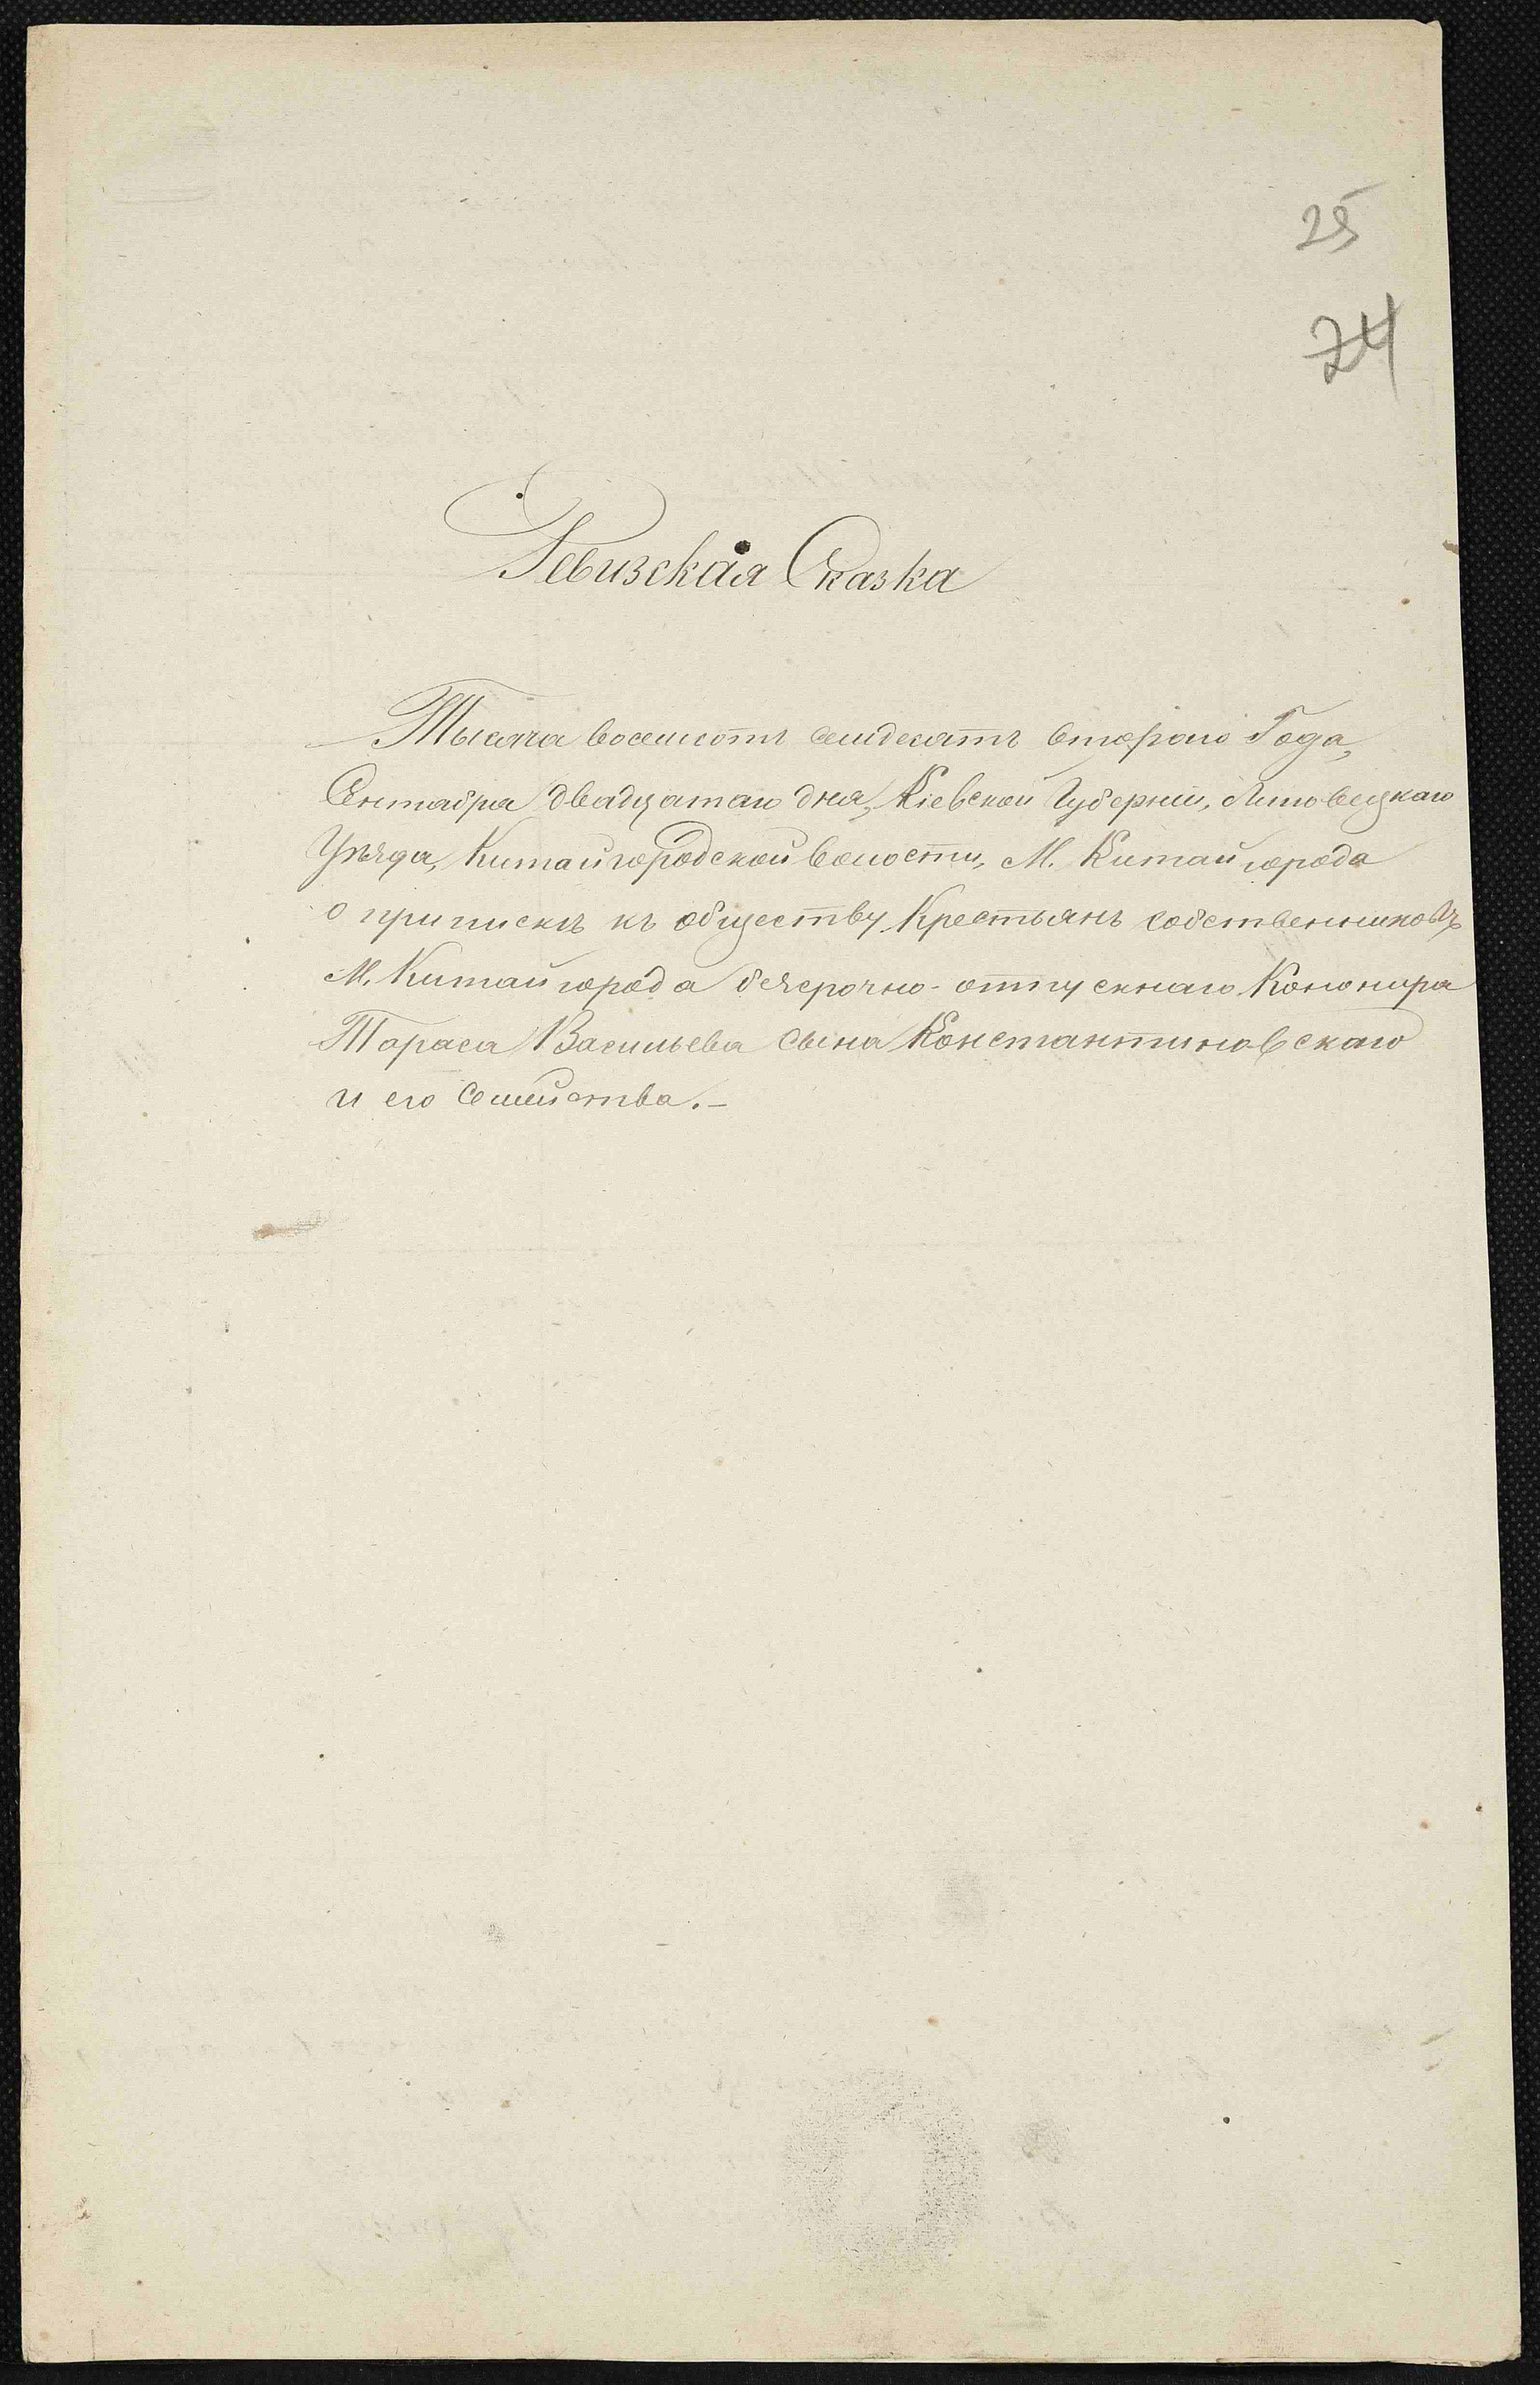 25
24
Ревизская Сказка
Тысяча восемсотъ семдесятъ второго Года,
Сентября двадцатаго дня, Кіевской Губерніи, Липовецкаго
Уѣзда, Китайгородской волости, М. Китайгорода
о припискѣ къ обществу Крестьянъ собственниковъ
М. Китайгорода безсрочно-отпускнаго Кононира
Тараса Васильева сына Константиновскаго
и его Семейства.-